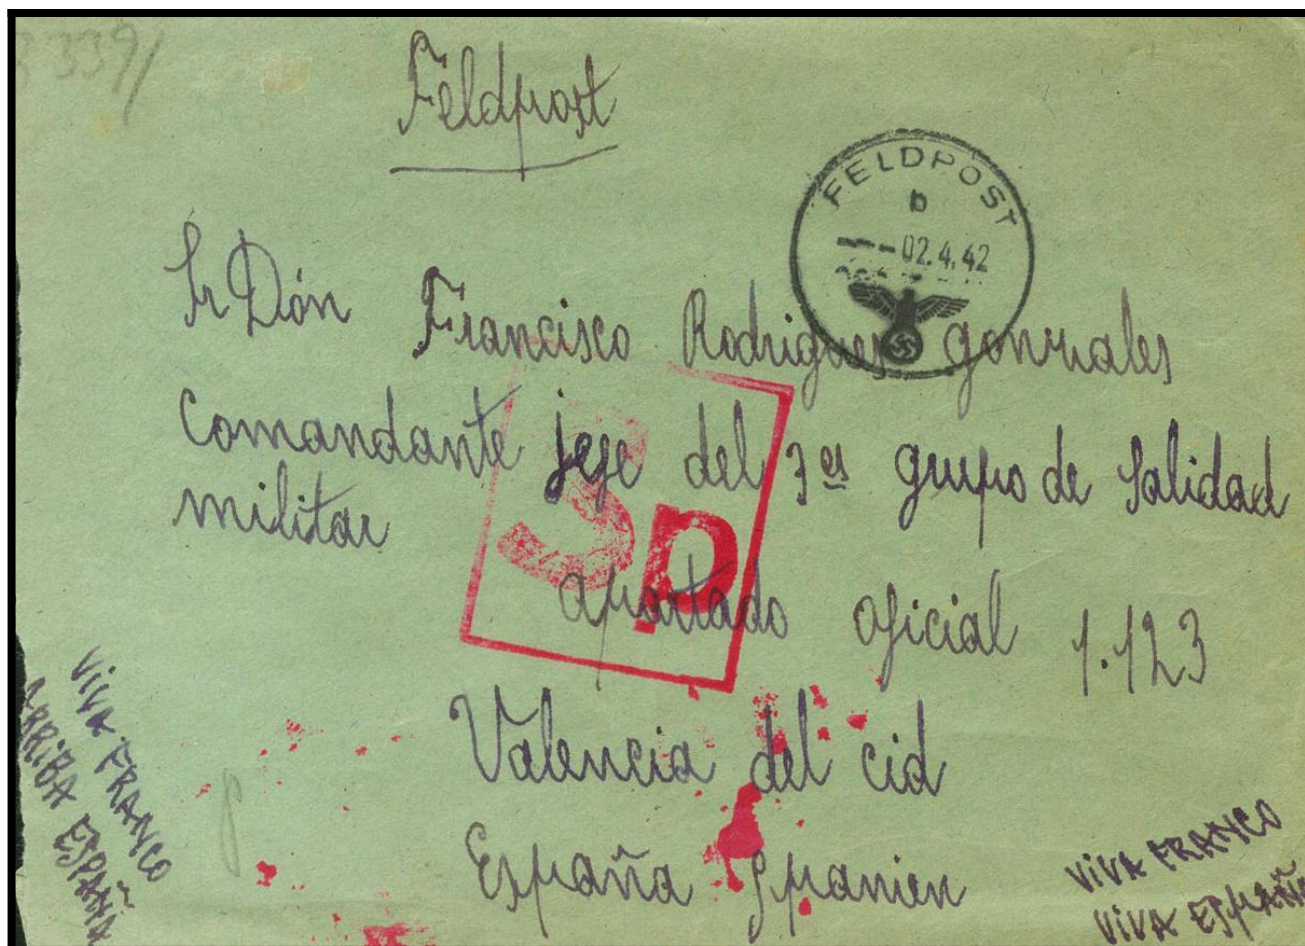 3391
Feldpost
FELDPOST
b
02.4.42
Sr Dón Francisco Rodrigues gonzales
comandante jefe del 3er grupo de Salidad
militar
Sp
apartado oficial 1.123
Valencia del cid
España Spanien
VIVA FRANCO
ARRIBA ESPAÑA
VIVA FRANCO
VIVA ESPAÑA